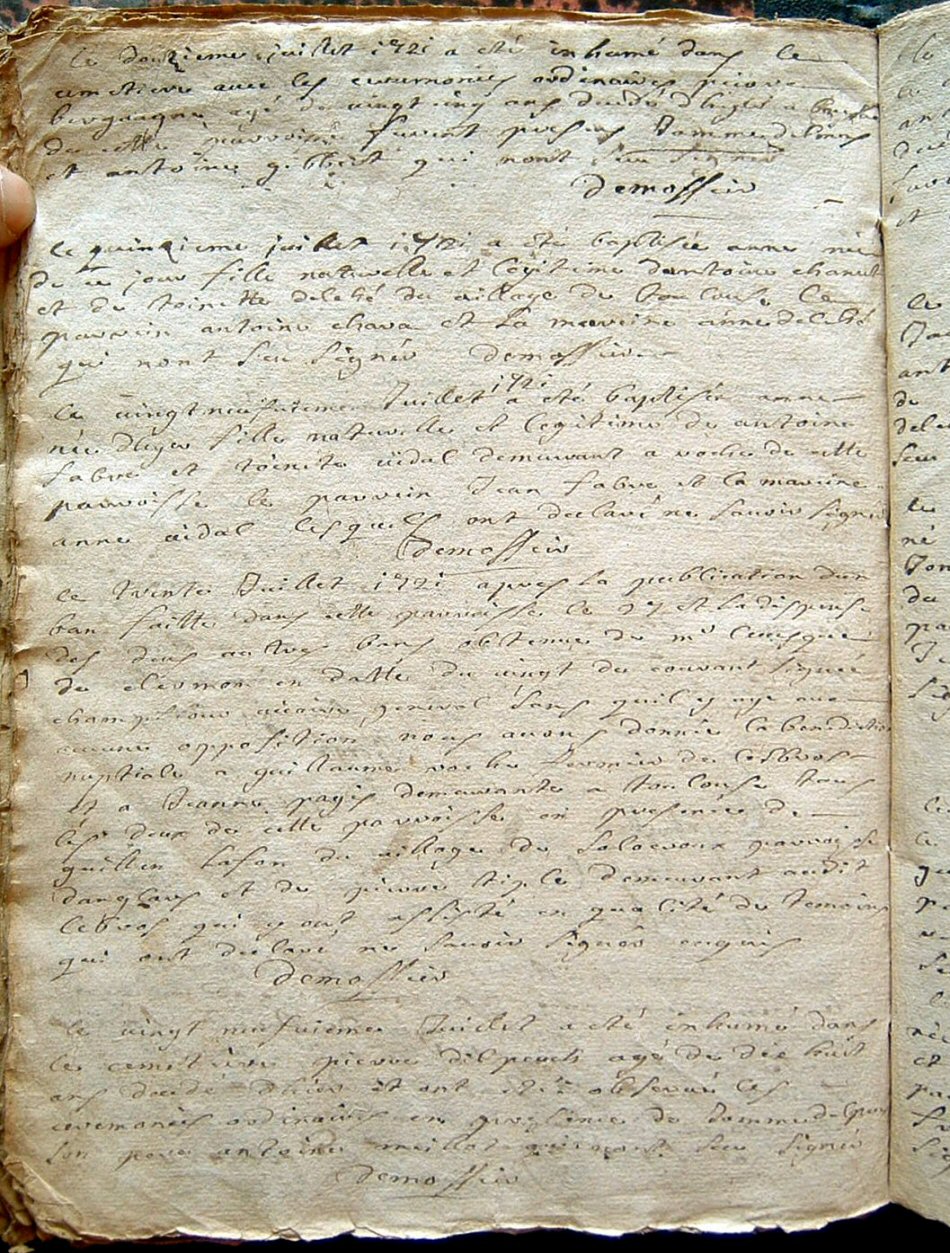 Le douzieme juillet 1721 a eté inhumé dans le
cimetiere avec les ceremonies ordinaires pierre
agé de vingt cinq ans decedé d'hyer a
de cette parroisse furent presens
et antoine qui nont sceu signer
demossier
Le quinzieme juillet 1721 a eté baptisée anne née
de ce jour fille naturelle et legitime dantoine
et de toinette delché du village de toulouse le
parrein antoine chava et la marreine anne delché
qui nont sceu signér demossier
Le vingt neufvieme Juillet 1721 a eté baptisée anne
née dhyer fille naturelle et legitime de antoine
fabre et toinete vidal demeurant a roche de cette
parroisse le parrein Jean fabre et la mareine
anne vidal lesquels ont declaré ne savoir signer
demossier
Le trente Juillet 1721 apres la publication dun
ban faitte dans cette parroisse le 27 et la dispense
des deux autres bans obtenue de mr levesque
de clermon en datte du vingt du courant signée
vicaire general sans quil y aye eue
aucune opposition nous avons donné la benediction
nuptiale a guillaume roche fermier de lesbros
et a Jeanne pagis demeurante a toulouse tous
les deux de cette parroisse en presence de
guillen lafon du village de parroisse
danglars et de pierre demeurant audit
lebros qui y ont assisté en qualité de temoins
qui ont declaré ne savoir signér enquis
demossier
Le vingt neufvieme Juillet a eté inhumé dans
le cemitiere pierre delpeuch agé de dix huit
ans decedé dhier et ont eté observée les
ceremonies ordinaires en presence de
son pere antoine meillot qui nont sceu signér
demossier